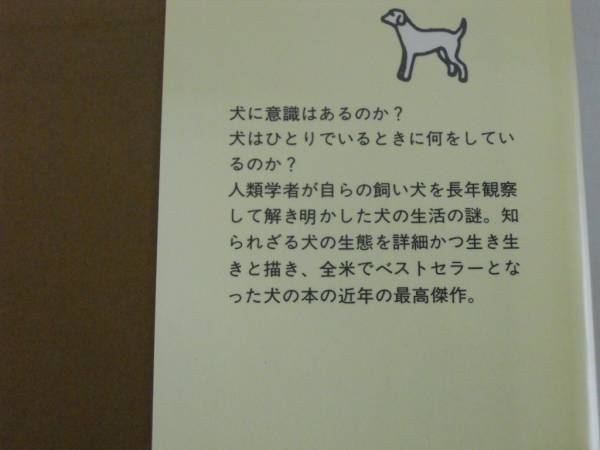 犬に意識はあるのか？
犬はひとりでいるときに何をしてい
るのか？
人類学者が自らの飼い犬を長年観察
して解き明かした犬の生活の謎。知
られざる犬の生態を詳細かつ生き生
きと描き、全米でベストセラーとな
った犬の本の近年の最高傑作。